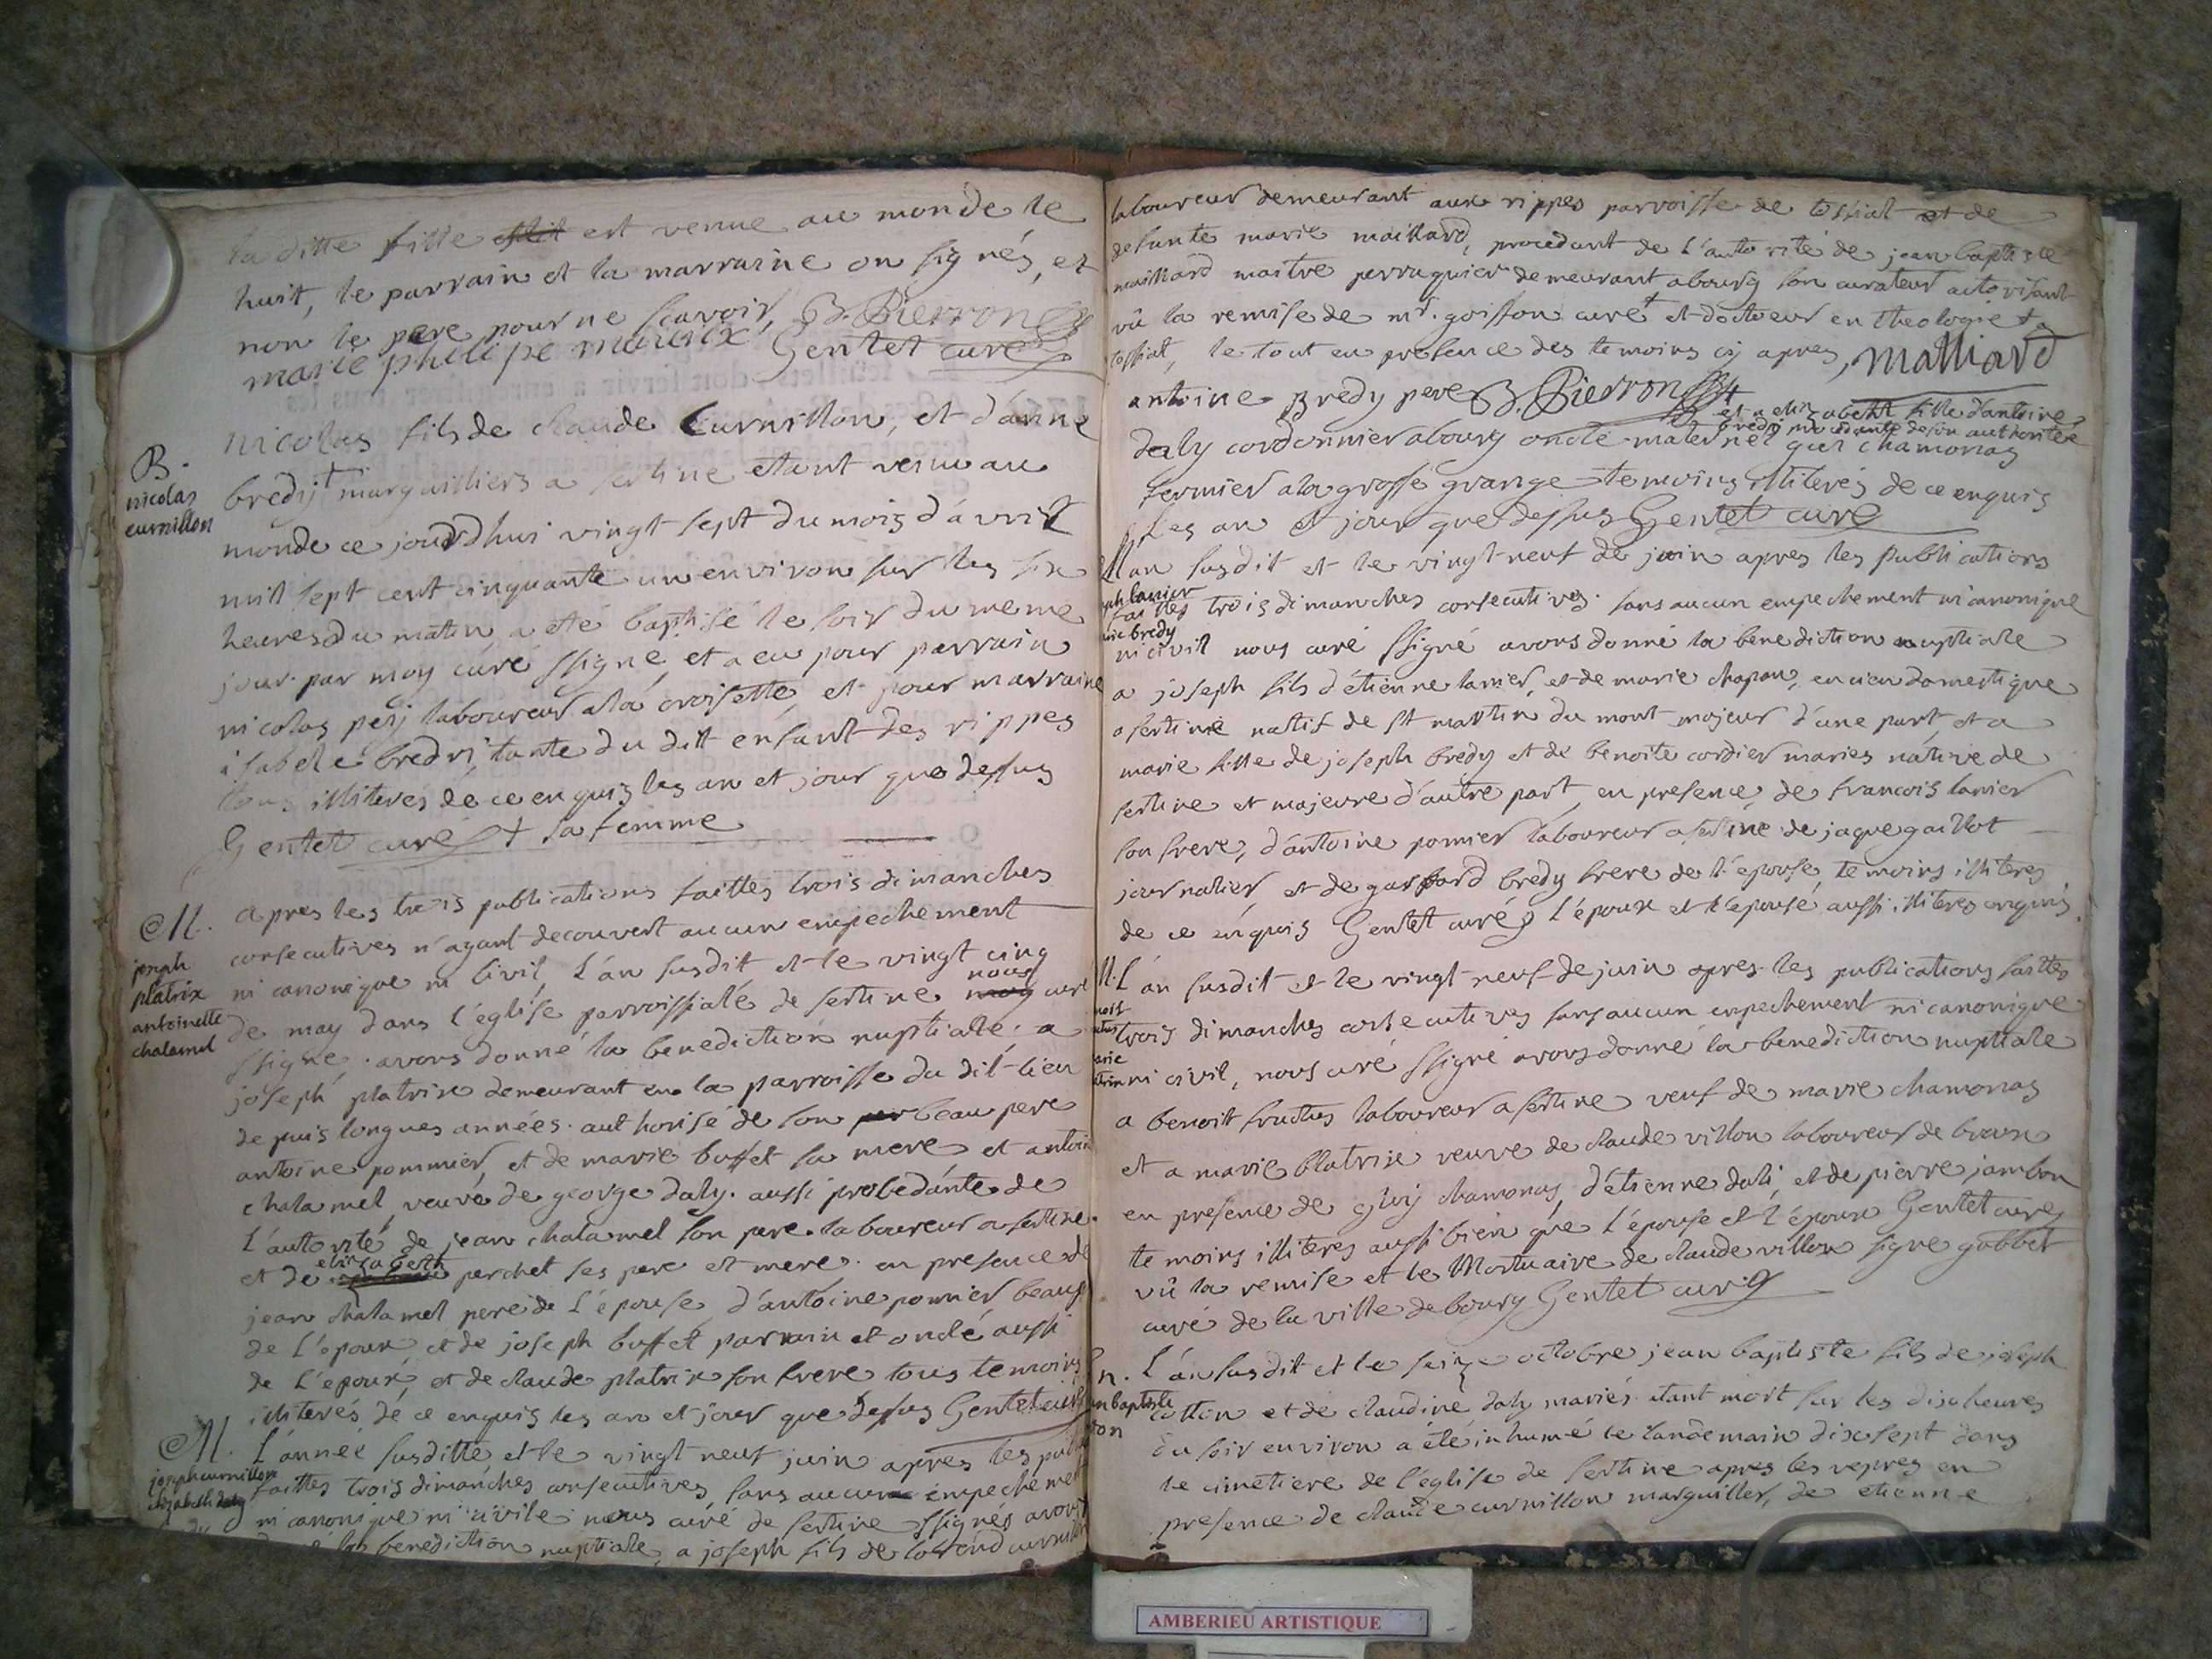 la ditte fille est venue au monde le
huit, le parrain et la marraine on signés, et
non le pere pour ne scavoir, B. Pierron
marie philipe Gentet curé
B.
nicolas
curnillon
nicolas fils de claude Curnillon, et d'anne
bredy + marguilliers a sertine etant venu au
monde ce jourdhui vingt sept du mois d'avril
mil sept cent cinquante un environ sur les six
heures du matin, a eté baptisé le soir du meme
jour par moy curé ssigné, et a eu pour parrain
nicolas perj laboureur a la croisette, et pour marraine
isabele bredri, tante du dit enfant des rippes
tous illiterés de ce enquis les an et jour que desus
Gentet curé + sa femme
M.
joseph
platrix
antoinette
chalamel
apres les trois publications faittes trois dimanches
consecutives n'ayant decouvert aucun empechement
ni canonique ni Civil, L'an susdit et le vingt cinq
de may dans l'église parroissialé de sertine nous curé
ssigné, avons donné la benediction nuptiale, a
joseph platrix demeurant en la parroisse du dit lieu
depuis longues années. authorisé de son beau pere
antoine pommier, et de marie buffet sa mere, et antoin
chalamel, veuve de george daly. aussi procedante de
L'autorité de jean chalamel son pere laboureur a sertine
et de elizabeth perchet ses pere et mere. en presence de
jean chalamel pere de L'épouse, d'antoine pomier beaup
de L'epoux, et de joseph buffet parrain et oncle aussi
de L'epoux, et de claude platrix son frere tous temoins
illiterés de ce enquis les an et jour que desus Gentet curé
M.
joseph curnillon
elizabeth daly
L'année susditte et le vingt neuf juin apres les publi
faittes trois dimanches consecutives, sans aucun empechement
ni canonique ni civile nous curé de sertine ssignés avons
la benediction nuptiale, a joseph fils de curnillon
laboureur demeurant aux rippes parroisse de tossiat et de
defunte marie maillard, procedant de L'autorité de jean baptiste
maillard maitre perruquier demeurant a bourg son curateur autorisant
vû la remise de mr. goisson curé + et docteur en theologie + de
tossiat, le tout en presence des temoins cy apres, Malliard
antoine Bredy pere B. Pierron
+ et a elizabeth fille d'antoine
bredy procedante de son authorité
daly cordonnier a bourg oncle maternel chamonas
fermier a la grosse grange temoins illiterés de ce enquis
Les an et jour que dessus Gentet curé
L'an susdit et le vingt neuf de juin apres les publications
faittes trois dimanches consecutives. sans aucun empechement ni canonique
ph lanier
bredy
ni civil nous curé ssigné avons donné la benediction nuptiale
a joseph fils d'étienne lanier, et de marie chapon, domestique
a sertine natif de st martin du mont majeur d'une part, et a
marie fille de joseph bredy et de benoite cordier mariés native de
sertine et majeure d'autre part, en presence, de francois lanier
son frere, d'antoine pomier laboureur a sertine de jaque gaillot
journalier, et de gaspard bredy frere de l'épouse, temoins illiterés
de ce enquis Gentet curé, L'epoux et L'epouse aussi illiterés enquis.
M. L'an susdit et le vingt neuf de juin apres les publications faittes
trois dimanches consecutives sans aucun empechement ni canonique
ni civil, nous curé ssigné avons donné la benediction nuptiale
a benoitt fructus laboureur a sertine veuf de marie chamonas
et a marie blatrix veuve de claude villon laboureur de brou
en presence de chamonas, d'étienne dali, et de pierre jambon
temoins illiteres aussi bien que L'épouse et L'époux Gentet curé
vû la remise et le Mortuaire de claude villon signé gobbet
curé de la ville de bourg Gentet curé
n.
baptiste
L'an susdit et le seize octobre jean baptiste fils de joseph
cotton et de claudine daly mariés. etant mort sur les dix heures
du soir environ a été inhumé le landemain dix sept dans
le cimetiere de l'église de sertine apres les vepres en
presence de claude curnillon marguillier, de etienne
AMBERIEU ARTISTIQUE